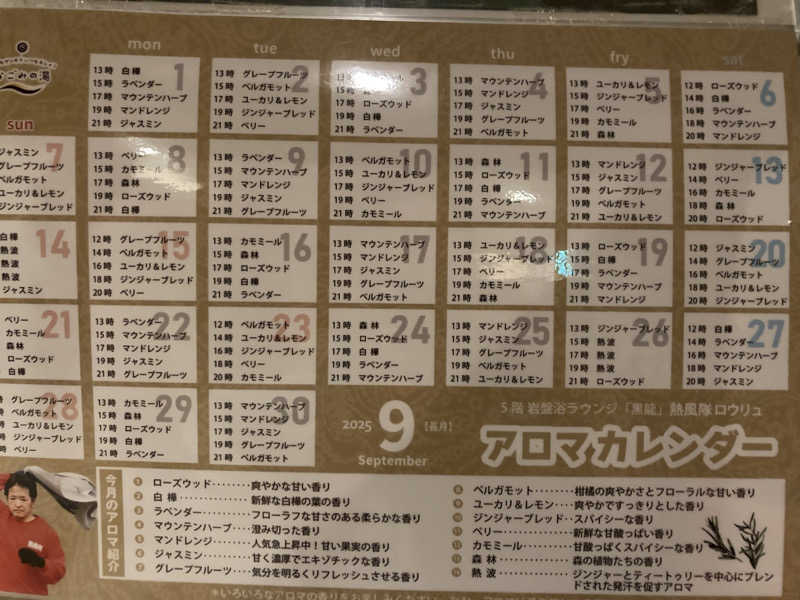 なごみの湯
mon
tue
wed
thu
fry
sat
sun
1
13時 白樺
15時 ラベンダー
17時 マウンテンハーブ
19時 マンドレンジ
21時 ジャスミン
2
13時 グレープフルーツ
15時 ベルガモット
17時 ユーカリ&レモン
19時 ジンジャーブレッド
21時 ベリー
3
13時
15時
17時 ローズウッド
19時 白樺
21時 ラベンダー
4
13時 マウンテンハーブ
15時 マンドレンジ
17時 ジャスミン
19時 グレープフルーツ
21時 ベルガモット
5
13時 ユーカリ&レモン
15時 ジンジャーブレッド
17時 ベリー
19時 カモミール
21時 森林
6
12時 ローズウッド
14時 白樺
16時 ラベンダー
18時 マウンテンハーブ
20時 マンドレンジ
7
ジャスミン
グレープフルーツ
ベルガモット
ユーカリ&レモン
ジンジャーブレッド
8
13時 ベリー
15時 カモミール
17時 森林
19時 ローズウッド
21時 白樺
9
13時 ラベンダー
15時 マウンテンハーブ
17時 マンドレンジ
19時 ジャスミン
21時 グレープフルーツ
10
13時 ベルガモット
15時 ユーカリ&レモン
17時 ジンジャーブレッド
19時 ベリー
21時 カモミール
11
13時 森林
15時 ローズウッド
17時 白樺
19時 ラベンダー
21時 マウンテンハーブ
12
13時 マンドレンジ
15時 ジャスミン
17時 グレープフルーツ
19時 ベルガモット
21時 ユーカリ&レモン
13
12時 ジンジャーブレッド
14時 ベリー
16時 カモミール
18時 森林
20時 ローズウッド
14
白樺
熱波
熱波
熱波
ジャスミン
15
12時 グレープフルーツ
14時 ベルガモット
16時 ユーカリ&レモン
18時 ジンジャーブレッド
20時 ベリー
16
13時 カモミール
15時 森林
17時 ローズウッド
19時 白樺
21時 ラベンダー
17
13時 マウンテンハーブ
15時 マンドレンジ
17時 ジャスミン
19時 グレープフルーツ
21時 ベルガモット
18
13時 ユーカリ&レモン
15時 ジンジャーブレッド
17時 ベリー
19時 カモミール
21時 森林
19
13時 ローズウッド
15時 白樺
17時 ラベンダー
19時 マウンテンハーブ
21時 マンドレンジ
20
12時 ジャスミン
14時 グレープフルーツ
16時 ベルガモット
18時 ユーカリ&レモン
20時 ジンジャーブレッド
21
ベリー
カモミール
森林
ローズウッド
白樺
22
13時 ラベンダー
15時 マウンテンハーブ
17時 マンドレンジ
19時 ジャスミン
21時 グレープフルーツ
23
12時 ベルガモット
14時 ユーカリ&レモン
16時 ジンジャーブレッド
18時 ベリー
20時 カモミール
24
13時 森林
15時 ローズウッド
17時 白樺
19時 ラベンダー
21時 マウンテンハーブ
25
13時 マンドレンジ
15時 ジャスミン
17時 グレープフルーツ
19時 ベルガモット
21時 ユーカリ&レモン
26
13時 ジンジャーブレッド
15時 熱波
17時 熱波
19時 熱波
21時 ローズウッド
27
12時 白樺
14時 ラベンダー
16時 マウンテンハーブ
18時 マンドレンジ
20時 ジャスミン
28
グレープフルーツ
ベルガモット
ユーカリ&レモン
ジンジャーブレッド
ベリー
29
13時 カモミール
15時 森林
17時 ローズウッド
19時 白樺
21時 ラベンダー
30
13時 マウンテンハーブ
15時 マンドレンジ
17時 ジャスミン
19時 グレープフルーツ
21時 ベルガモット
2025 9 [長月]
September
5階 岩盤浴ラウンジ「黒龍」熱風隊ロウリュ
アロマカレンダー
今月のアロマ紹介
1 ローズウッド‥‥‥爽やかな甘い香り
2 白樺‥‥‥‥‥‥新鮮な白樺の葉の香り
3 ラベンダー‥‥‥フローラフな甘さのある柔らかな香り
4 マウンテンハーブ‥‥澄み切った香り
5 マンドレンジ‥‥‥人気急上昇中!甘い果実の香り
6 ジャスミン‥‥‥甘く濃厚でエキゾチックな香り
7 グレープフルーツ‥‥気分を明るくリフレッシュさせる香り
8 ベルガモット‥‥‥柑橘の爽やかさとフローラルな甘い香り
9 ユーカリ&レモン‥‥爽やかですっきりとした香り
10 ジンジャーブレッド‥‥スパイシーな香り
11 ベリー‥‥‥‥‥新鮮な甘酸っぱい香り
12 カモミール‥‥‥甘酸っぱくスパイシーな香り
13 森林‥‥‥‥‥‥森の植物たちの香り
14 熱波‥‥‥‥‥‥ジンジャーとティートゥリーを中心にブレンドされた発汗を促すアロマ
*いろいろなアロマの香りをお楽しみください